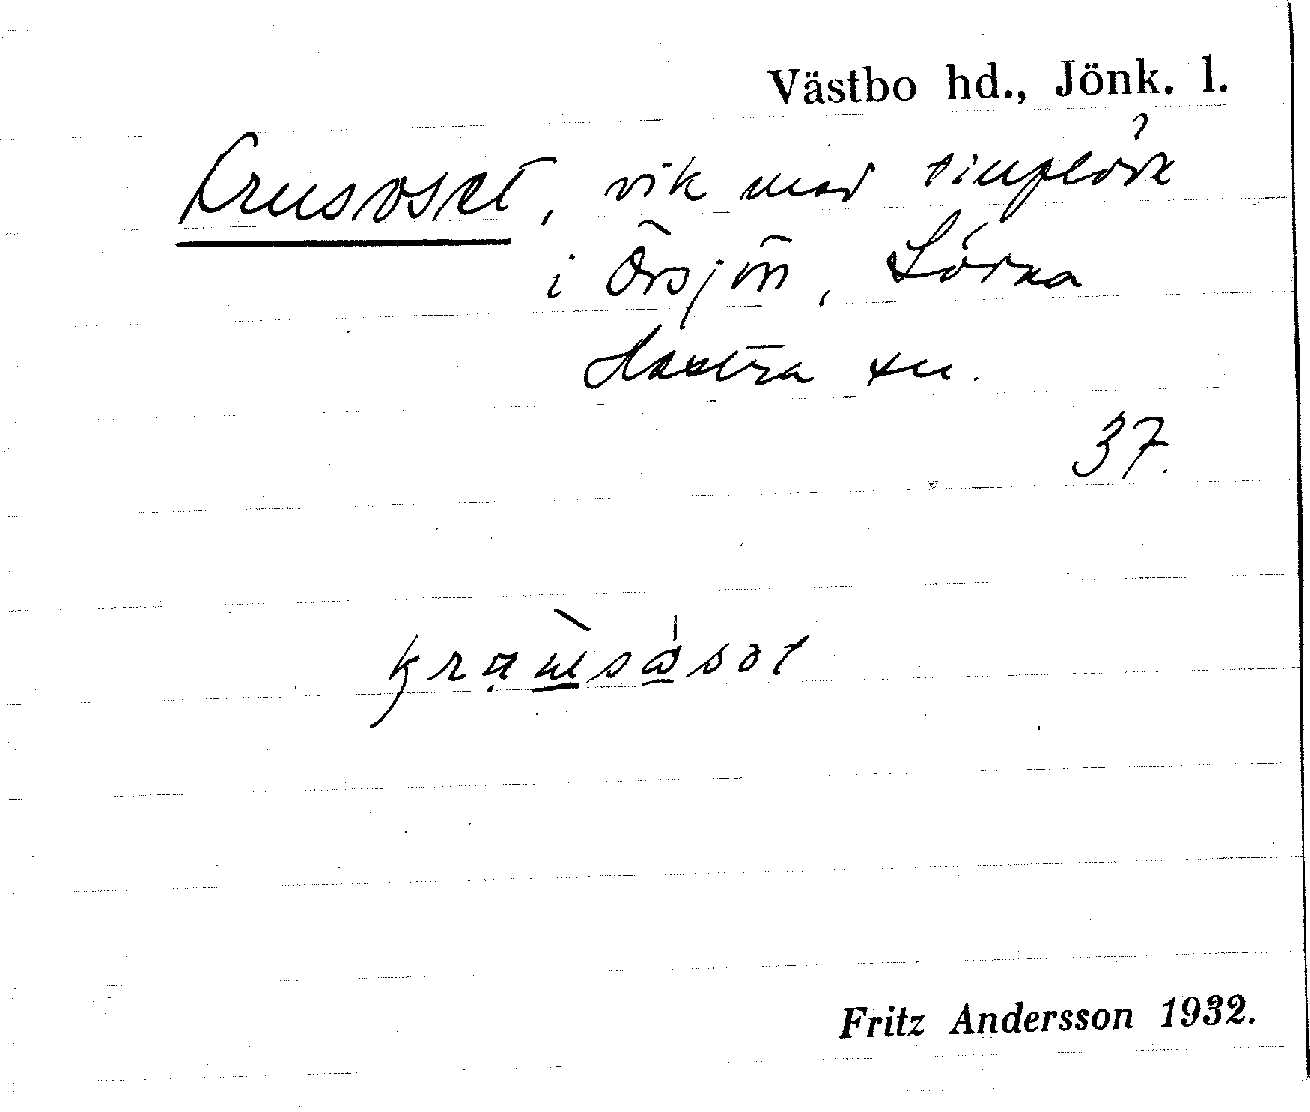 Västbo hd., Jönk. l.
Krusoset, vik med
i Örsjön, Södra
Hestra sn.
37.
Fritz Andersson 1932.